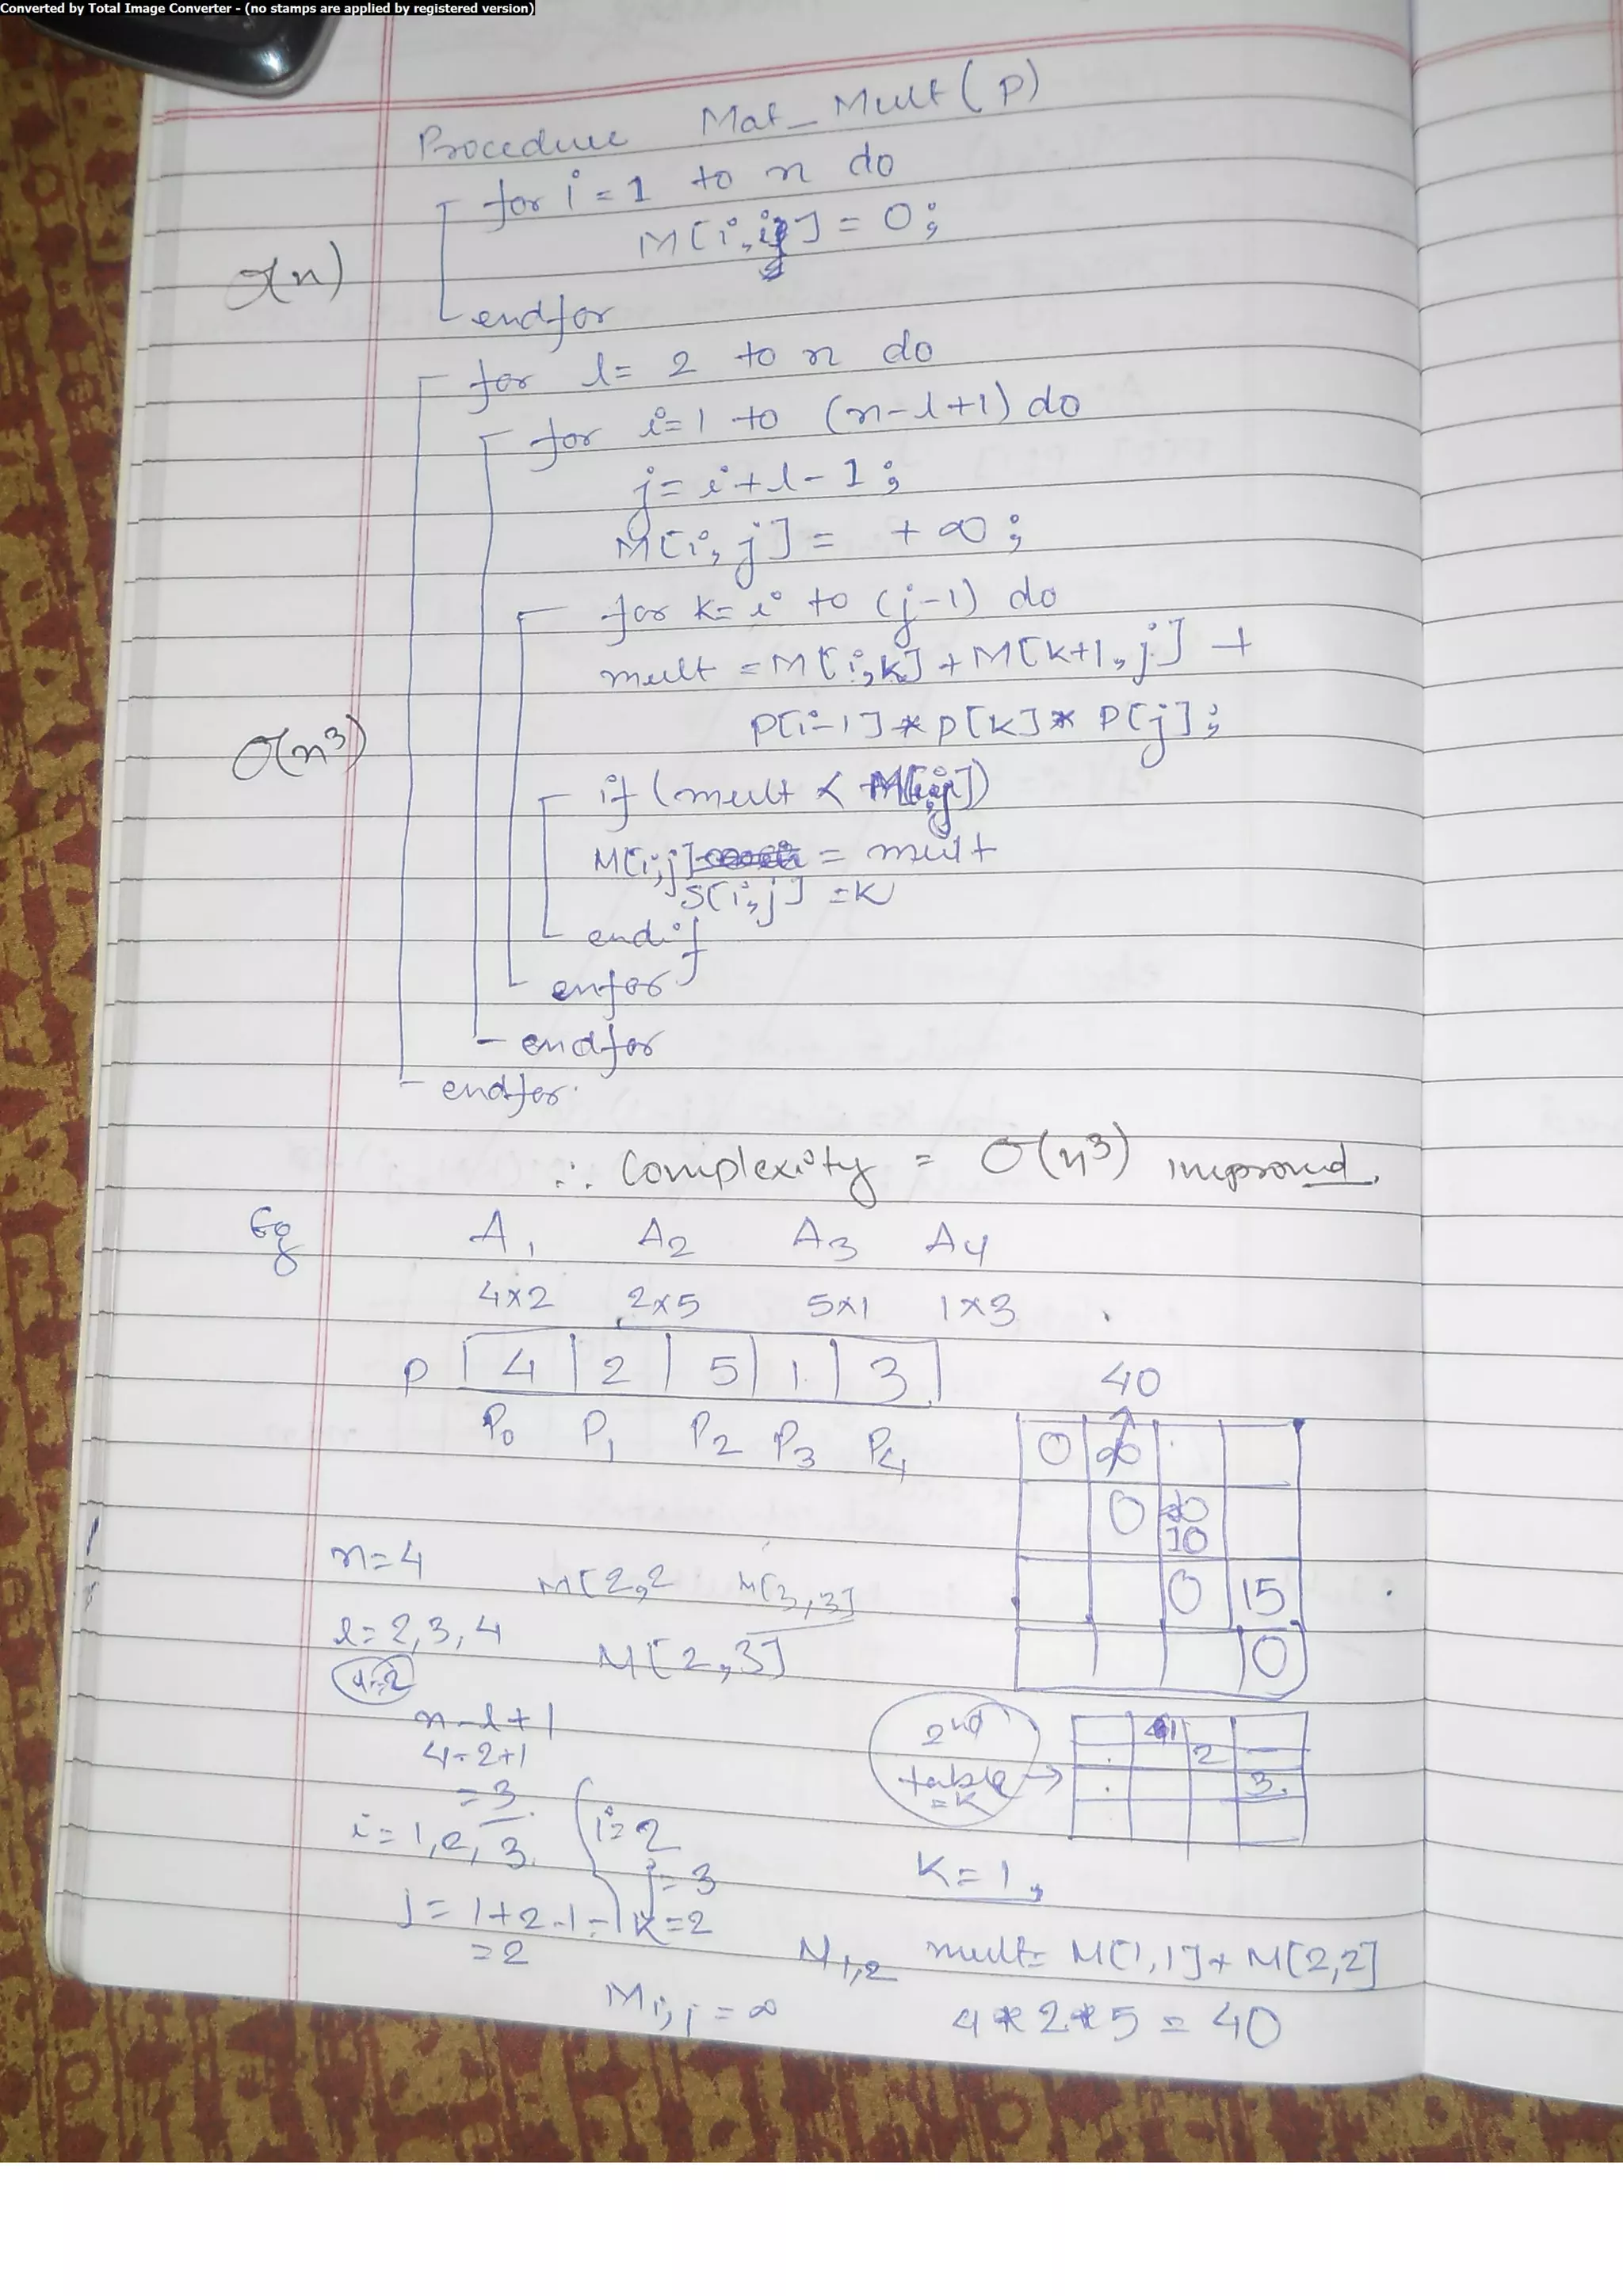 Converted by Total Image Converter - (no stamps are applied by registered version)
Procedure Mat_Mult(P)
for i = 1 to n do
M[i, i] = 0;
O(n)
endfor
for l = 2 to n do
for i = 1 to (n-l+1) do
j = i+l-1;
M[i, j] = +∞;
for k = i to (j-1) do
mult = M[i,k] + M[k+1, j] +
P[i-1] * P[k] * P[j];
O(n³)
if (mult < M[i,j])
M[i,j] = mult
S[i,j] = k
endif
enfor
endfor
endfor.
∴ Complexity = O(n³) improved.
Eg A1 A2 A3 A4
4×2 2×5 5×1 1×3
P 4 2 5 1 3
P0 P1 P2 P3 P4
40
0 ∞
0 ∞
10
0 15
0
n=4 M[2,2 M[3,3]
l=2,3,4 M[2,3]
n-l+1
4-2+1
=3
2nd
table
=K
1
2
3.
i=1,2,3. i=2
j=3
K=1,
j = 1+2-1 K=2
=2
M1,2 mult= M[1,1]+M[2,2]
Mi,j = ∞ 4*2*5 = 40